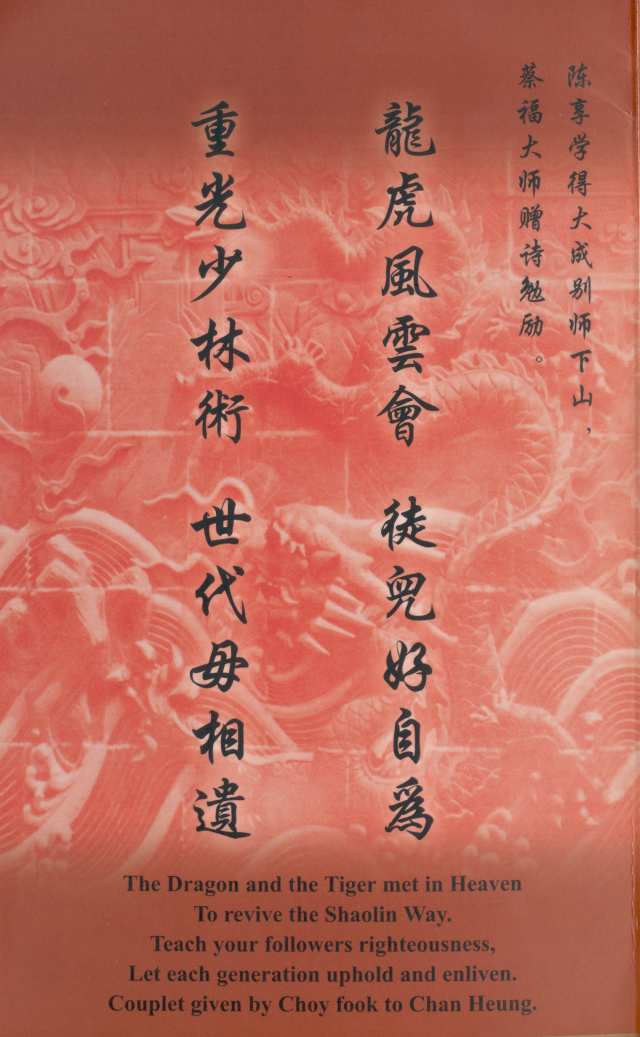 陈享学得大成别师下山，
蔡福大师赠诗勉励。
龍虎風雲會 徒兒好自爲
重光少林術 世代毋相遺
The Dragon and the Tiger met in Heaven
To revive the Shaolin Way.
Teach your followers righteousness,
Let each generation uphold and enliven.
Couplet given by Choy fook to Chan Heung.